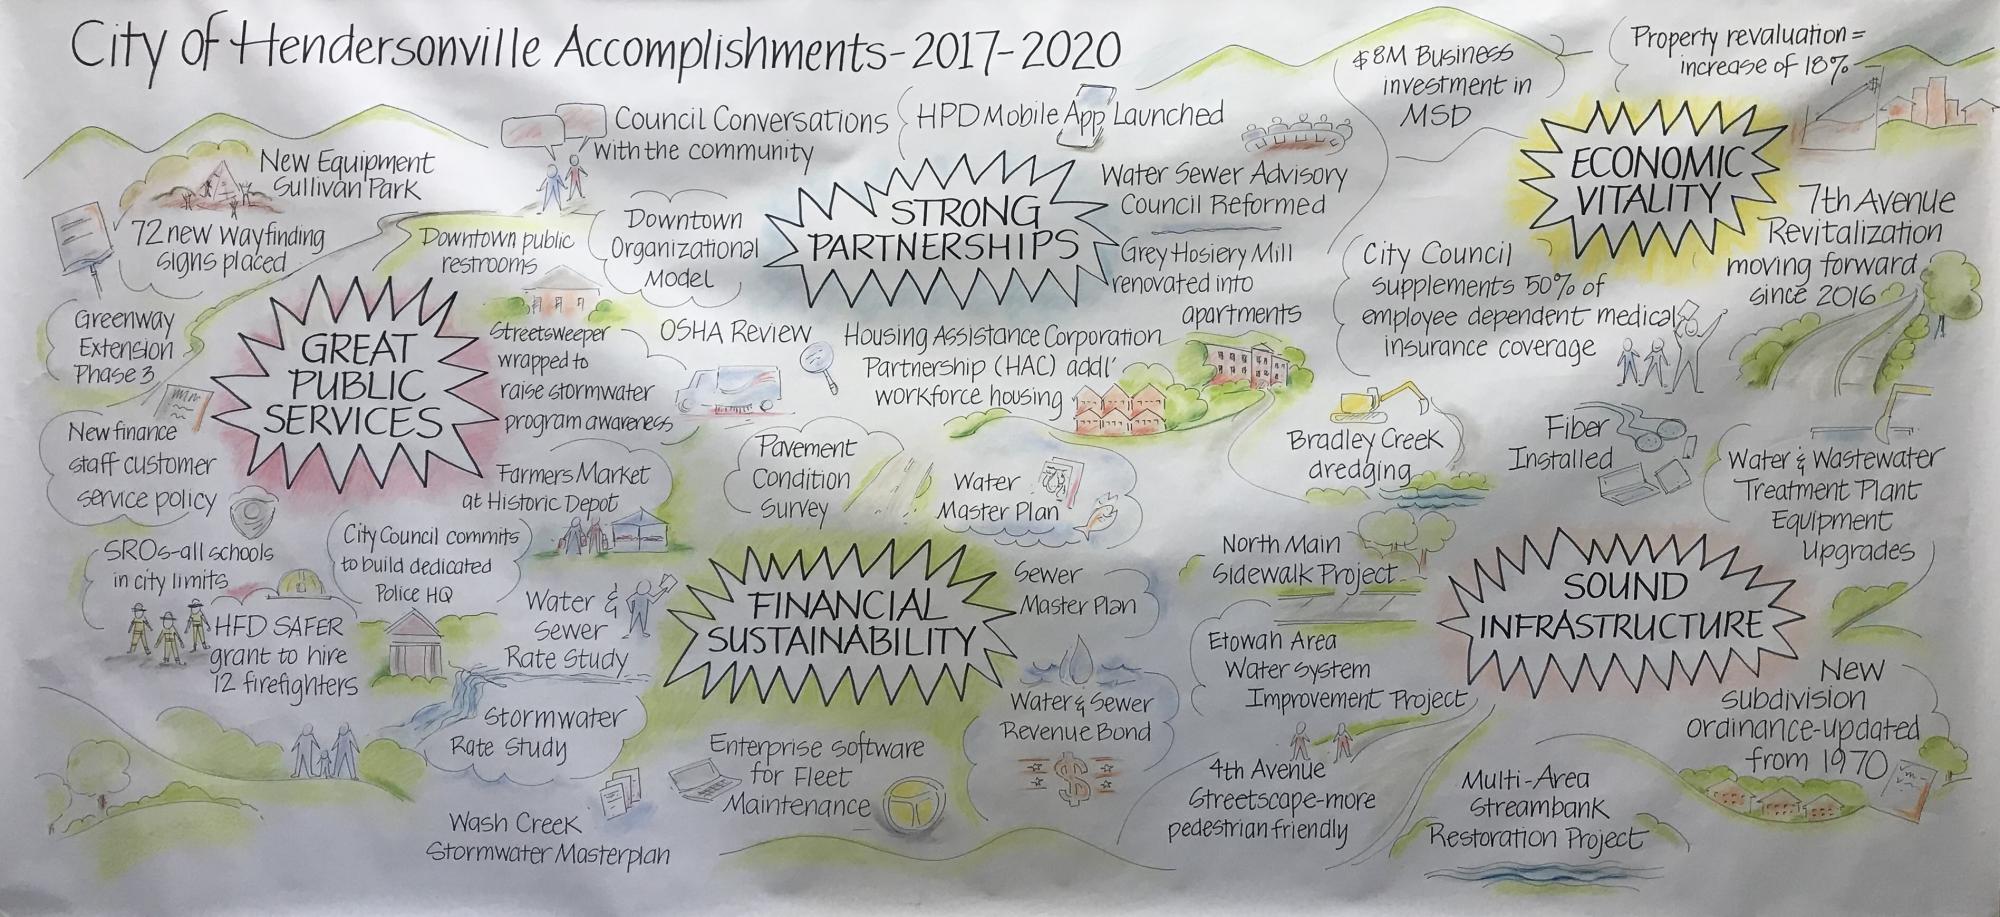 City of Hendersonville Accomplishments-2017-2020
New Equipment
Sullivan Park
72 new wayfinding
signs placed
Greenway
Extension
Phase 3
New finance
staff customer
service policy
SROs-all schools
in city limits
HFD SAFER
grant to hire
12 firefighters
GREAT
PUBLIC
SERVICES
Downtown public
restrooms
Streetsweeper
wrapped to
raise stormwater
program awareness
Farmers Market
at Historic Depot
City Council commits
to build dedicated
Police HQ
Council Conversations
with the community
HPD Mobile App Launched
Downtown
Organizational
Model
STRONG
PARTNERSHIPS
Water Sewer Advisory
Council Reformed
Grey Hosiery Mill
renovated into
apartments
OSHA Review
Housing Assistance Corporation
Partnership (HAC) addl'
workforce housing
Pavement
Condition
Survey
Water
Master Plan
Sewer
Master Plan
FINANCIAL
SUSTAINABILITY
Water &
Sewer
Rate Study
Stormwater
Rate Study
Wash Creek
Stormwater Masterplan
Enterprise software
for Fleet
Maintenance
Water & Sewer
Revenue Bond
$
$8M Business
investment in
MSD
Property revaluation =
increase of 18%
$
ECONOMIC
VITALITY
7th Avenue
Revitalization
moving forward
since 2016
City Council
supplements 50% of
employee dependent medical
insurance coverage
Bradley Creek
dredging
Fiber
Installed
Water & Wastewater
Treatment Plant
Equipment
Upgrades
North Main
Sidewalk Project
SOUND
INFRASTRUCTURE
Etowah Area
Water System
Improvement Project
4th Avenue
Streetscape-more
pedestrian friendly
Multi-Area
Streambank
Restoration Project
New
subdivision
ordinance-updated
from 1970